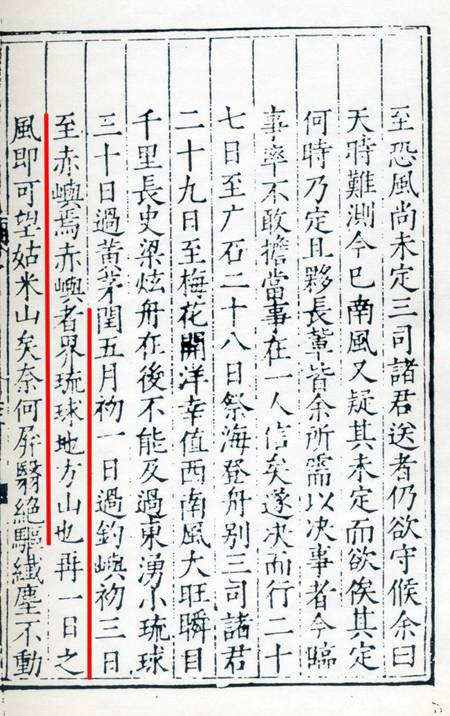 至恐風尚未定三司諸君送者仍欲守候余曰
天時難測今已南風又疑其未定而欲俟其定
何時乃定且夥長輩皆余所需以决事者今臨
事率不敢擔當事在一人信矣遂决而行二十
七日至广石二十八日祭海登舟别三司諸君
二十九日至梅花開洋幸值西南風大旺瞬目
千里長史梁炫舟在後不能及過東湧小琉球
三十日過黄茅閏五月初一日過釣嶼初三日
至赤嶼焉赤嶼者界琉球地方山也再一日之
風即可望姑米山矣奈何屏翳絶驅纖塵不動